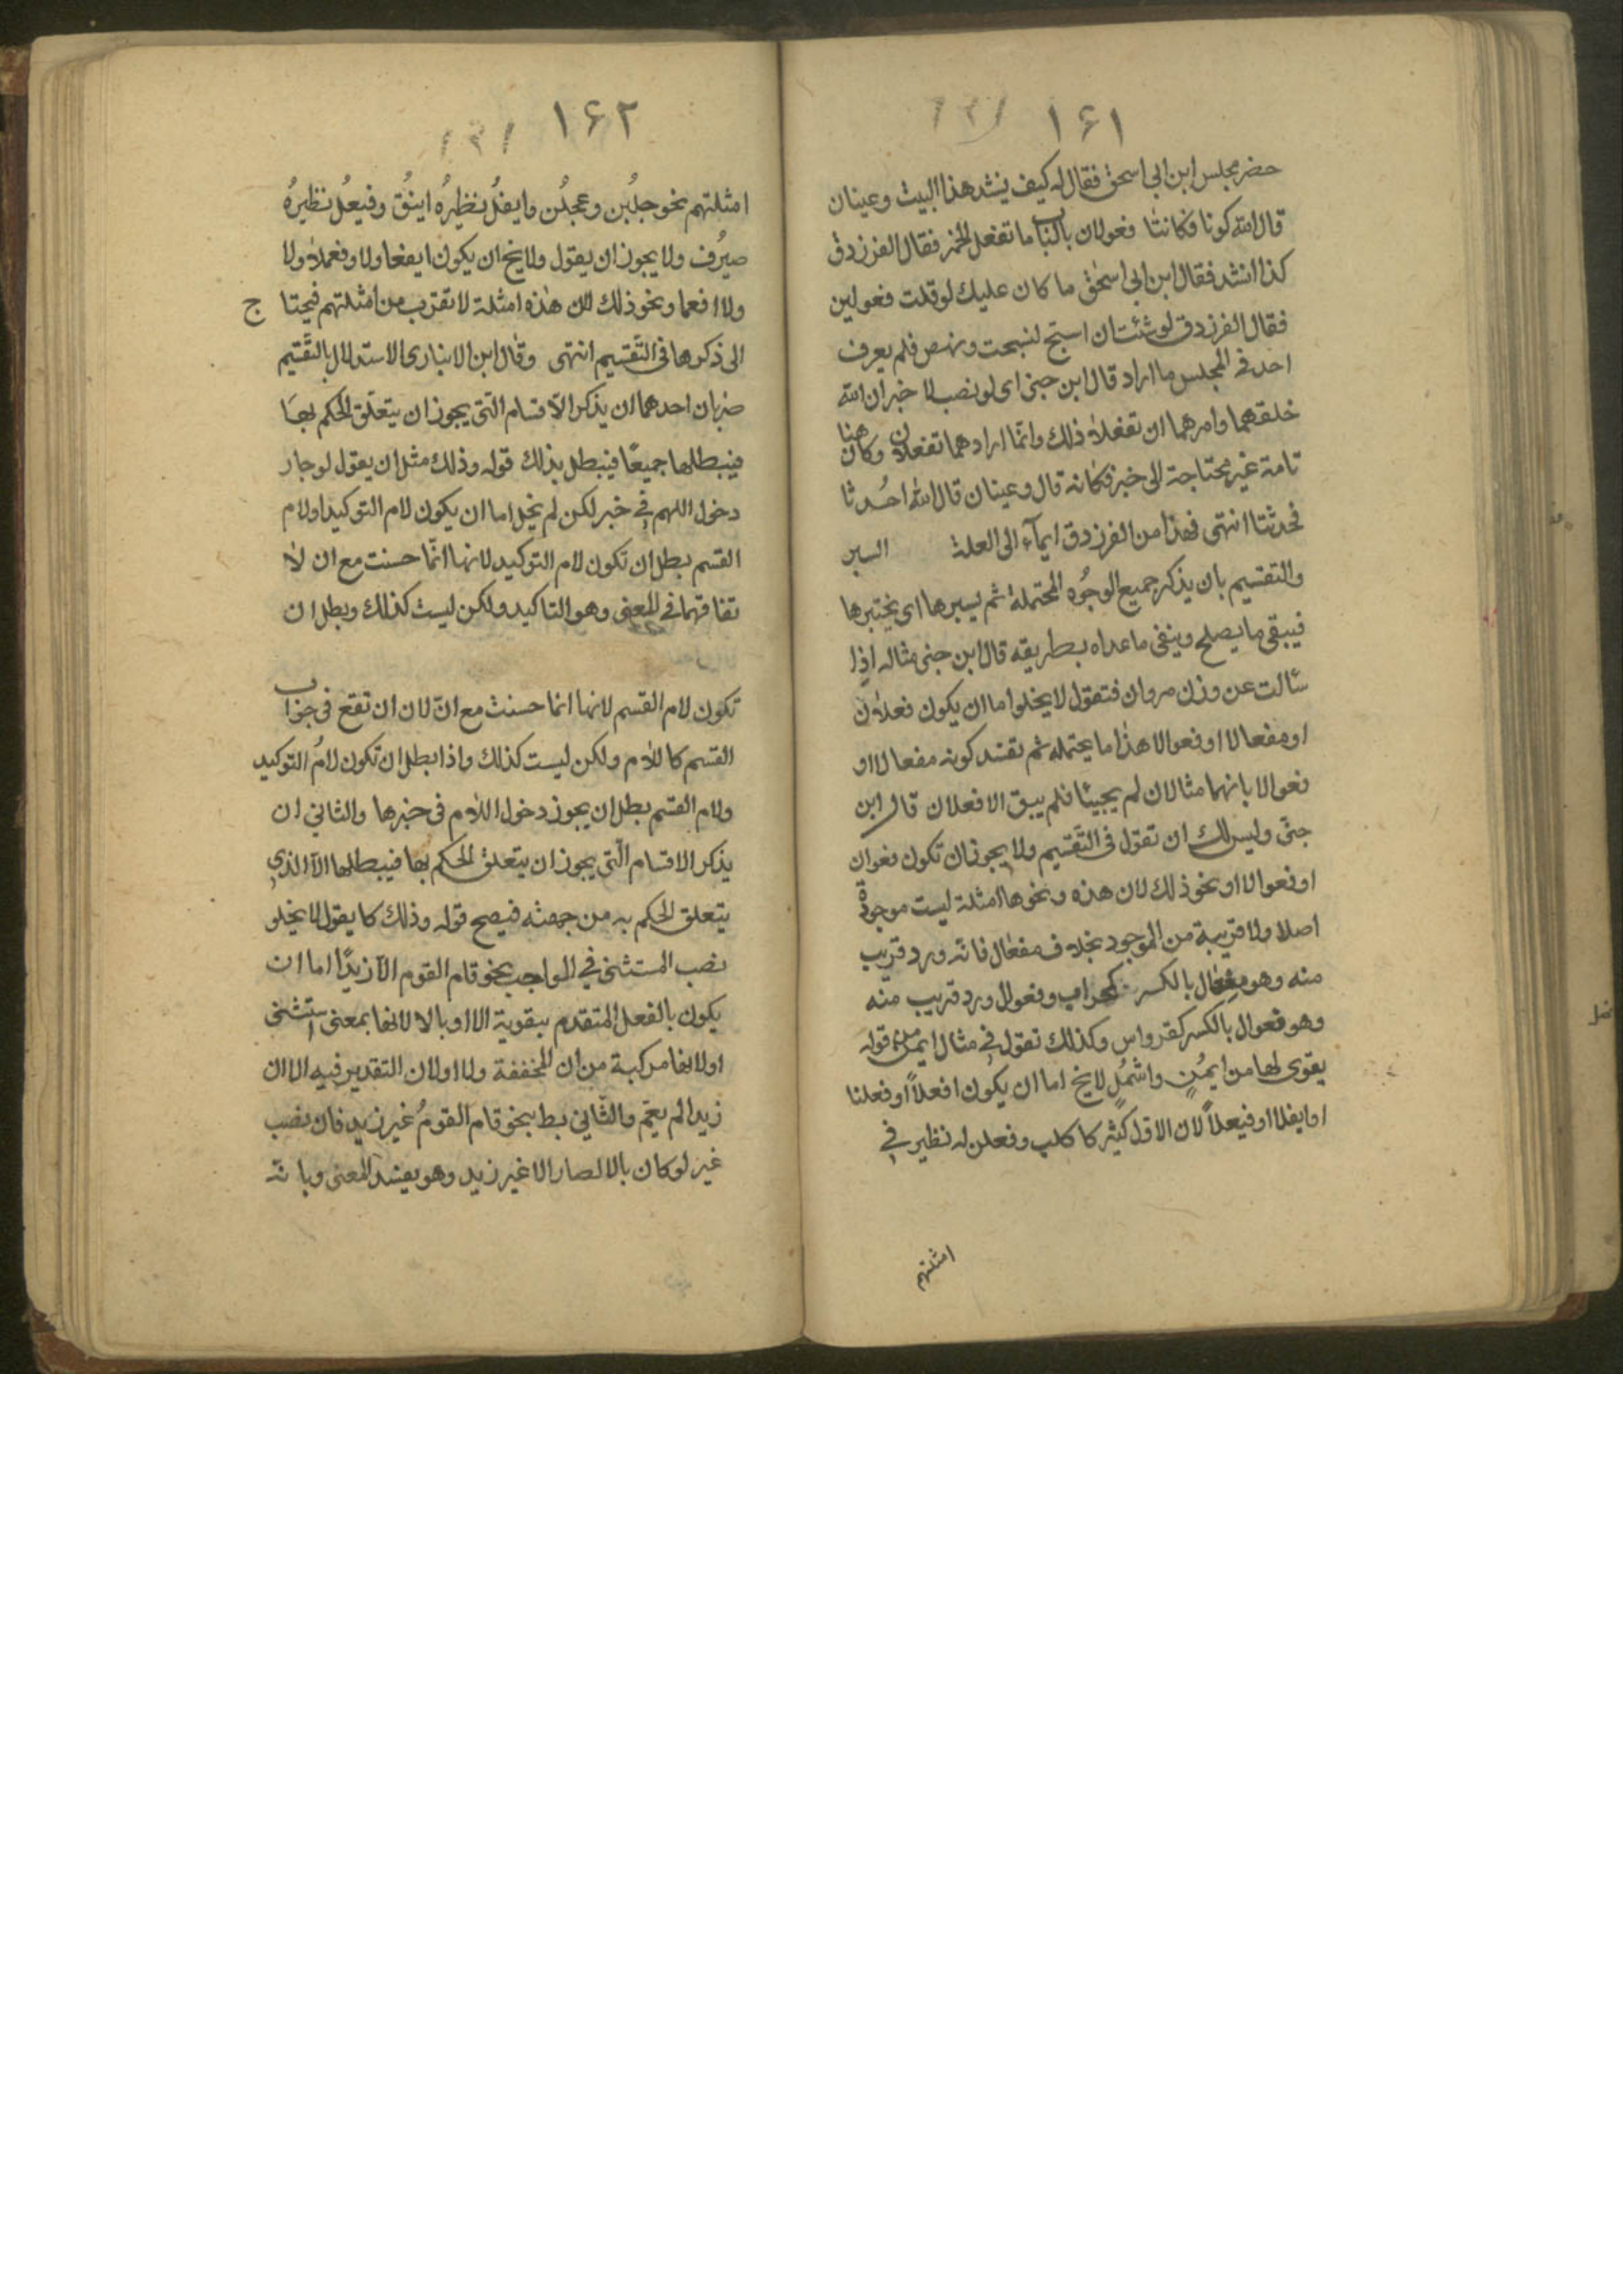 ١۶١
حضر مجلس ابن ابى اسحق فقال له كيف ينشد هذا البيت وعينان
قال الله كونا فكانتا فعولان بالباب ما تفعل الخمر فقال الفرزدق
كذا انشد فقال ابن ابى اسحق ما كان عليك لو قلت فعولين
فقال الفرزدق لو شئت ان اسبح لسبحت ونهض فلم يعرف
احد فى المجلس ما اراد قال ابن جنى اى لو نصب لا خبر ان الله
خلقهما وامرهما ان تفعلا ذلك وانّما اراد هما تفعلان وكان هنا
تامة غير محتاجة الى خبر فكانه قال وعينان قال الله احدثا
فحدثتا انتهى فهذا من الفرزدق ايمآء الى العلة السبر
والتقسيم بان يذكر جميع الوجُوه المحتملة ثم يسبرها اى يختبرها
فيبقى ما يصلح وينفى ما عداه بطريقه قال ابن جنى مثاله اذا
سئالت عن وزن مروان فتقول لا يخلوا اما ان يكون فعلان
او مفعالا او فعوالا هذا ما يحتمله ثم تفسد كونه مفعالا او
فعوالا بانهما مثالان لم يجيئا فلم يبق الا فعلان قال ابن
جنّى وليس لك ان تقول فى التّقسيم ولا يجوز ان تكون فعوان
او فعوالا او نحو ذلك لان هذه ونحوها امثلة ليست موجودة
اصلا ولا قريبة من الموجود بخلاف مفعال فانّه ورد قريب
منه وهو مفعال بالكسر كمحراب وفعوال ورد قريب منه
وهو فعوال بالكسر كقرواس وكذلك تقول فى مثال ايمن من قوله
يقوى لها من ايمُنٍ واشمُلٍ لا يخ اما ان يكون افعلاً او فعلنا
او ايفلا او فيعلاً لان الاول كثير كاكلب وفعلن له نظير فى
امثلتهم
١۶٢
امثلتهم نحو جلبُن وعجلُن وايفلُ نظيرُه اينُق وفيعُل نظيرُه
صيرُف ولا يجوز ان يقول ولا يخ ان يكون ايفعا ولا وفعملا ولا
ولا افعما ونحو ذلك لان هذه امثلة لا تقرب من امثلتهم فيحتا ج
الى ذكرها فى التّقسيم انتهى وقال ابن الانبارى الاستدلال بالتّقسيم
ضربان احدهما ان يذكر الاقسام الّتى يجوز ان يتعلّق الحكم بها
فيبطلها جميعًا فيبطل بذلك قوله وذلك مثل ان يقول لو جاز
دخول اللام فى خبر لكن لم يخل اما ان يكون لام التوكيد او لام
القسم بطل ان تكون لام التوكيد لانها انّما حسنت مع ان لا
تفاقهما فى المعنى وهو التاكيد ولكن ليست كذلك وبطل ان
تكون لام القسم لانها انما حسنت مع انّ لان ان تقع فى جواب
القسم كاللام ولكن ليست كذلك واذا بطل ان تكون لامُ التوكيد
ولام القسم بطل ان يجوز دخول اللام فى خبرها والثانى ان
يذكر الاقسام الّتى يجوز ان يتعلق الحكم بها فيبطلها الّا الذى
يتعلق الحكم به من جهته فيصح قوله وذلك كا يقول لا يخلو
نصب المستثنى فى الواجب نحو قام القوم الّا زيدًا اما ان
يكون بالفعل المتقدم بتقوية الا او بالا لانها بمعنى استثنى
او لانها مركبة من ان المخففة ولا او لان التقدير فيه الا ان
زيدا لم يقم والثّانى بط بنحو قام القومُ غير زيد فان نصب
غير لو كان بالا لصار الا غير زيد وهو يفسد المعنى وبانّه